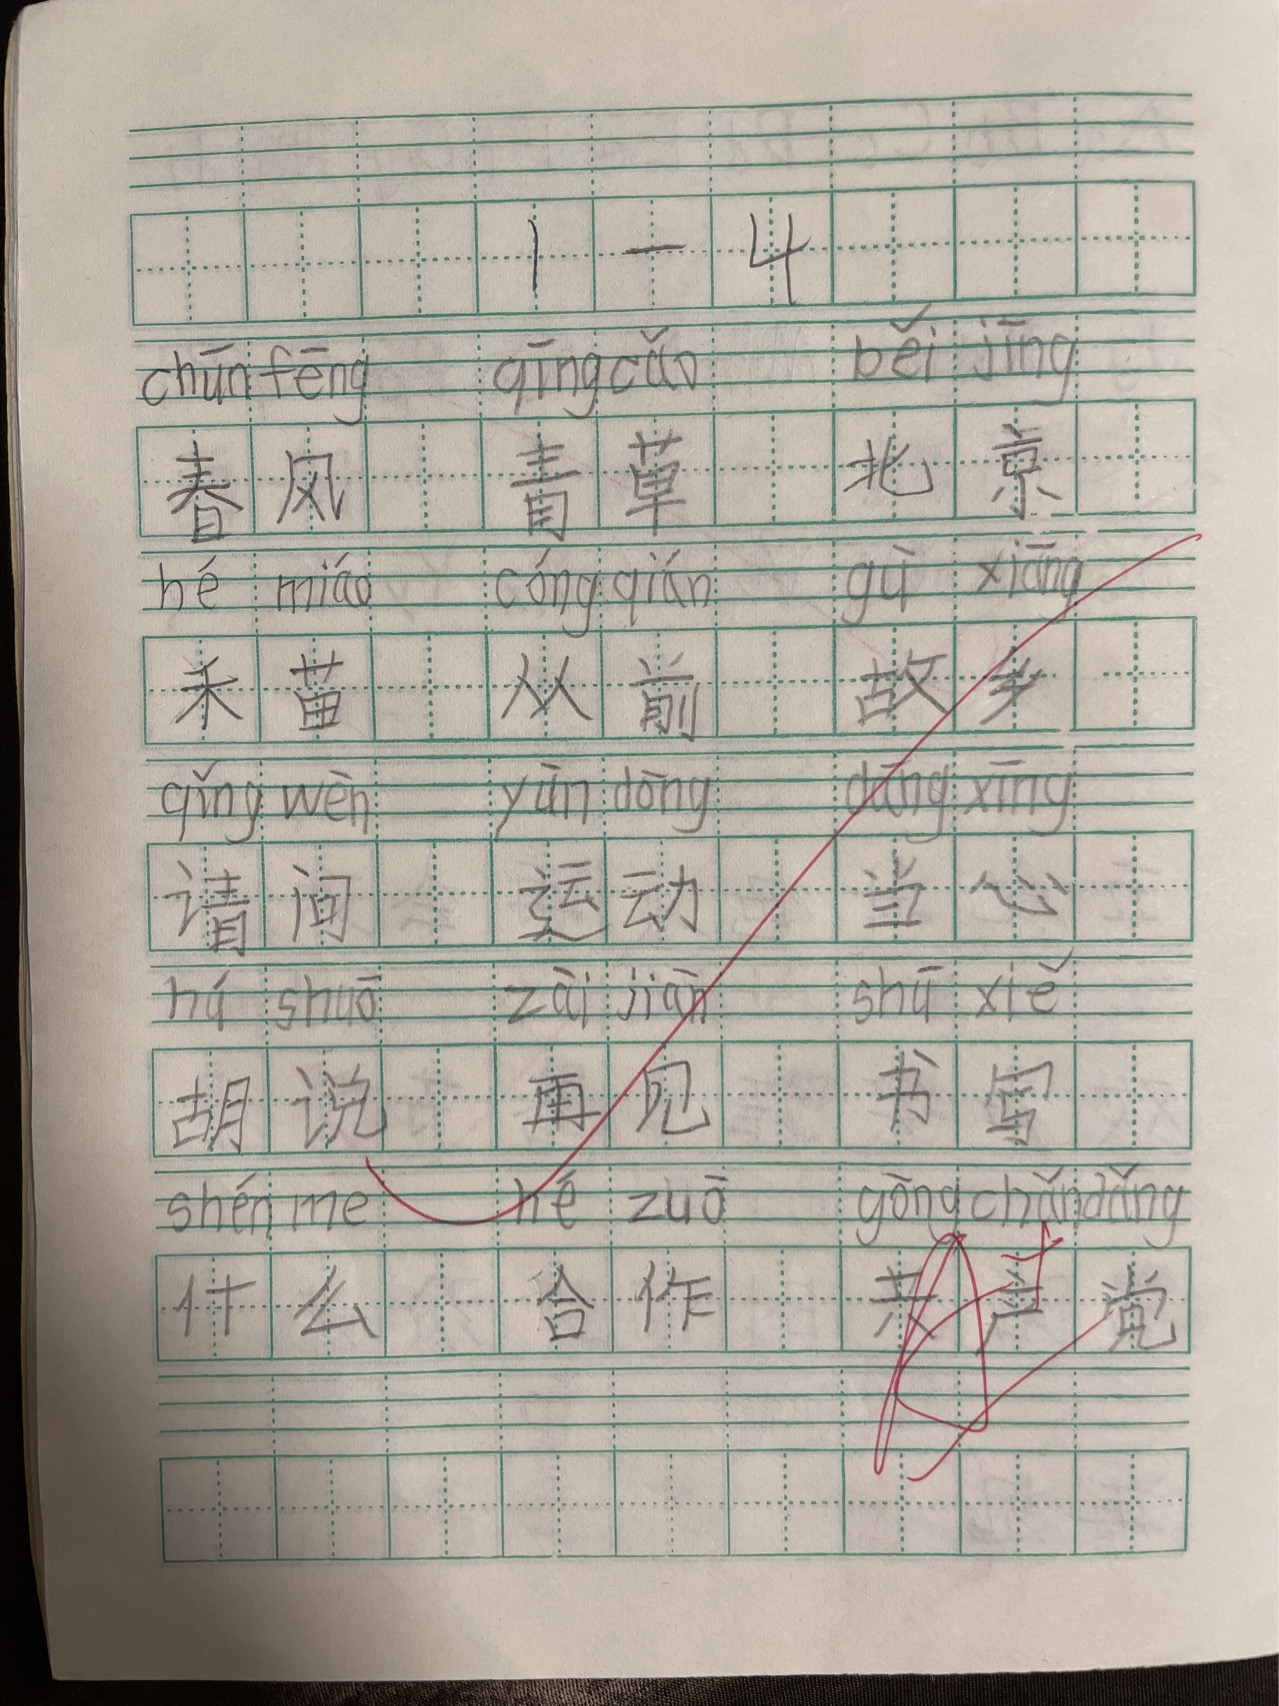 1 一 4
chūn fēng qīng cǎo běi jīng
春风 青草 北京
hé miáo cóng qián gù xiāng
禾苗 从前 故乡
qǐng wèn yùn dòng dāng xīng
请问 运动 当心
hú shuō zài jiàn shū xiě
胡说 再见 书写
shén me hé zuō gòng chǎn dǎng
什么 合作 共产党
A+